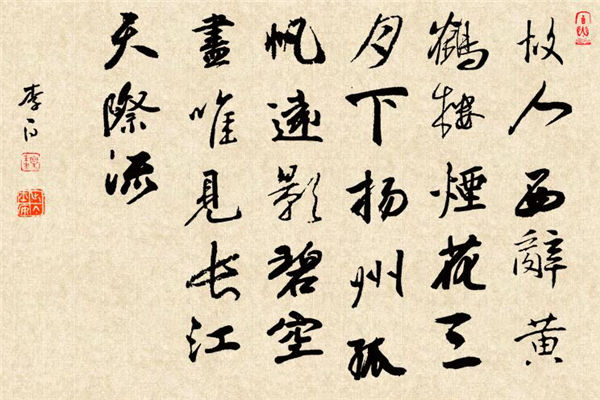 故人西辭黄
鶴樓煙花三
月下揚州孤
帆遠影碧空
盡唯見長江
天際流
李白